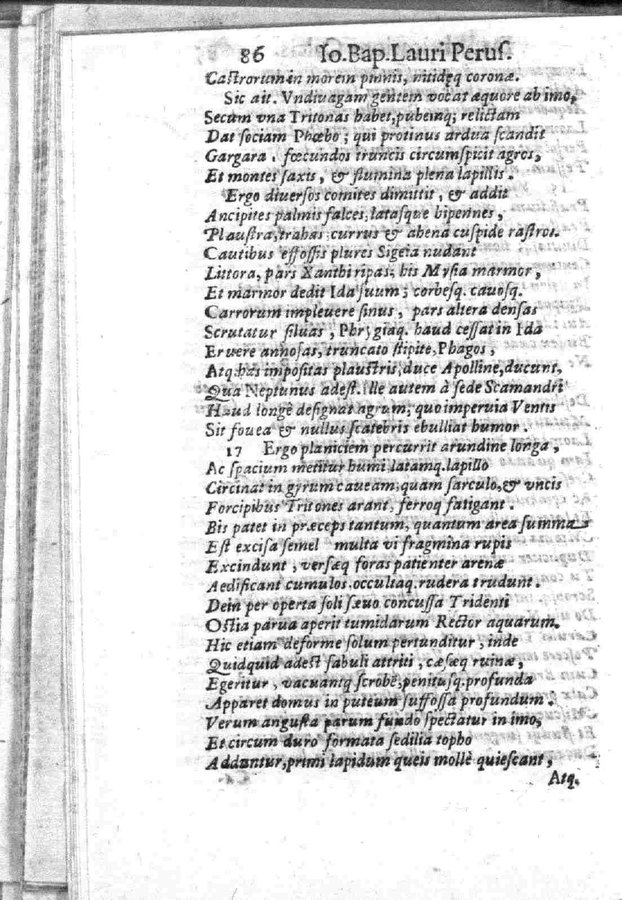 86 Io.Bap.Lauri Perus.
Castrorum in morem pinnis, nitidęq coronæ.
Sic ait. Vndiuagam gentem vocat æquore ab imo,
Secum vna Tritonas habet, pubemq; relictam
Dat sociam Phœbo; qui protinus ardua scandit
Gargara. fœcundos truncis circumspicit agros,
Et montes saxis, & flumina plena lapillis.
Ergo diuersos comites dimittit, & addit
Ancipites palmis falces, latasque bipennes,
Plaustra, trahas, currus & ahena cuspide rastros.
Cautibus effossis plures Sigeia nudant
Littora, pars Xanthi ripas; his Mysia marmor,
Et marmor dedit Ida suum; corbesq. cauosq.
Carrorum impleuere sinus, pars altera densas
Scrutatur siluas, Phrygiaq. haud cessat in Ida
Eruere annosas, truncato stipite, Phagos,
Atq. has impositas plaustris, duce Apolline, ducunt,
Qua Neptunus adest. Ille autem à sede Scamandri
Haud longè designat agrum; quo imperuia Ventis
Sit fouea & nullus scatebris ebulliat humor.
17 Ergo planiciem percurrit arundine longa,
Ac spacium metitur humi. latamq. lapillo
Circinat in gyrum caueam; quam sarculo, & vncis
Forcipibus Tritones arant, ferroq fatigant.
Bis patet in præceps tantum, quantum area summa
Est excisa semel multa vi fragmina rupis
Excindunt, versæq foras patienter arenæ
Aedificant cumulos. occultaq. rudera trudunt.
Dein per operta soli sæuo concussa Tridenti
Ostia parua aperit tumidarum Rector aquarum.
Hic etiam deforme solum pertunditur, inde
Quidquid adest sabuli attriti, cæsæq ruinæ,
Egeritur, vacuantq scrobē; penitusq. profunda
Apparet domus in puteum suffossa profundum.
Verum angusta parum fundo spectatur in imo,
Et circum duro formata sedilia topho
Adduntur, primi lapidum queis mollè quiescant,
Atq.